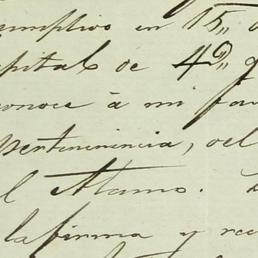 umplio en 15,, d
apital de 4,,
conoce à mi fa
pertenencia, del
l Alamo.
la firma y rec